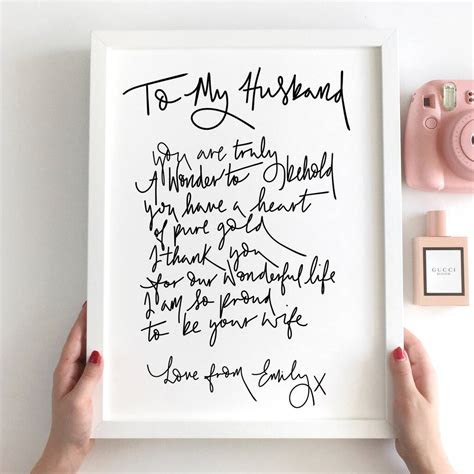 To My Husband
you are truly
A Wonder to behold
you have a heart
of pure gold
I thank you
for our wonderful life
I am so proud
to be your wife
Love from Emily X
GUCCI